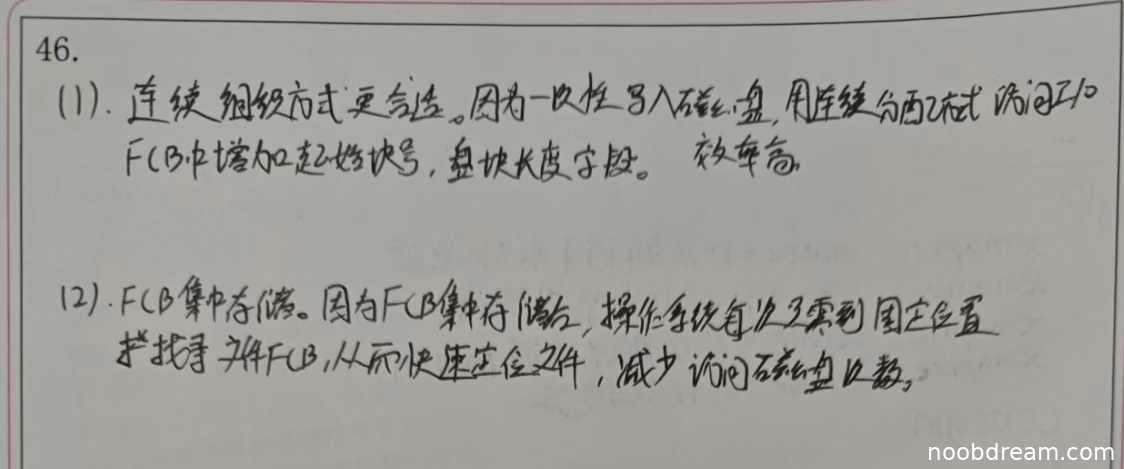 46.
(1). 连续组织方式更合适。因为一次性写入磁盘,用连续分配方式访问I/O
FCB中增加起始块号,盘块长度字段。 效率高
(2). FCB集中存储。因为FCB集中存储后,操作系统每次只需到固定位置
找寻文件FCB,从而快速定位文件,减少访问磁盘次数。
noobdream.com